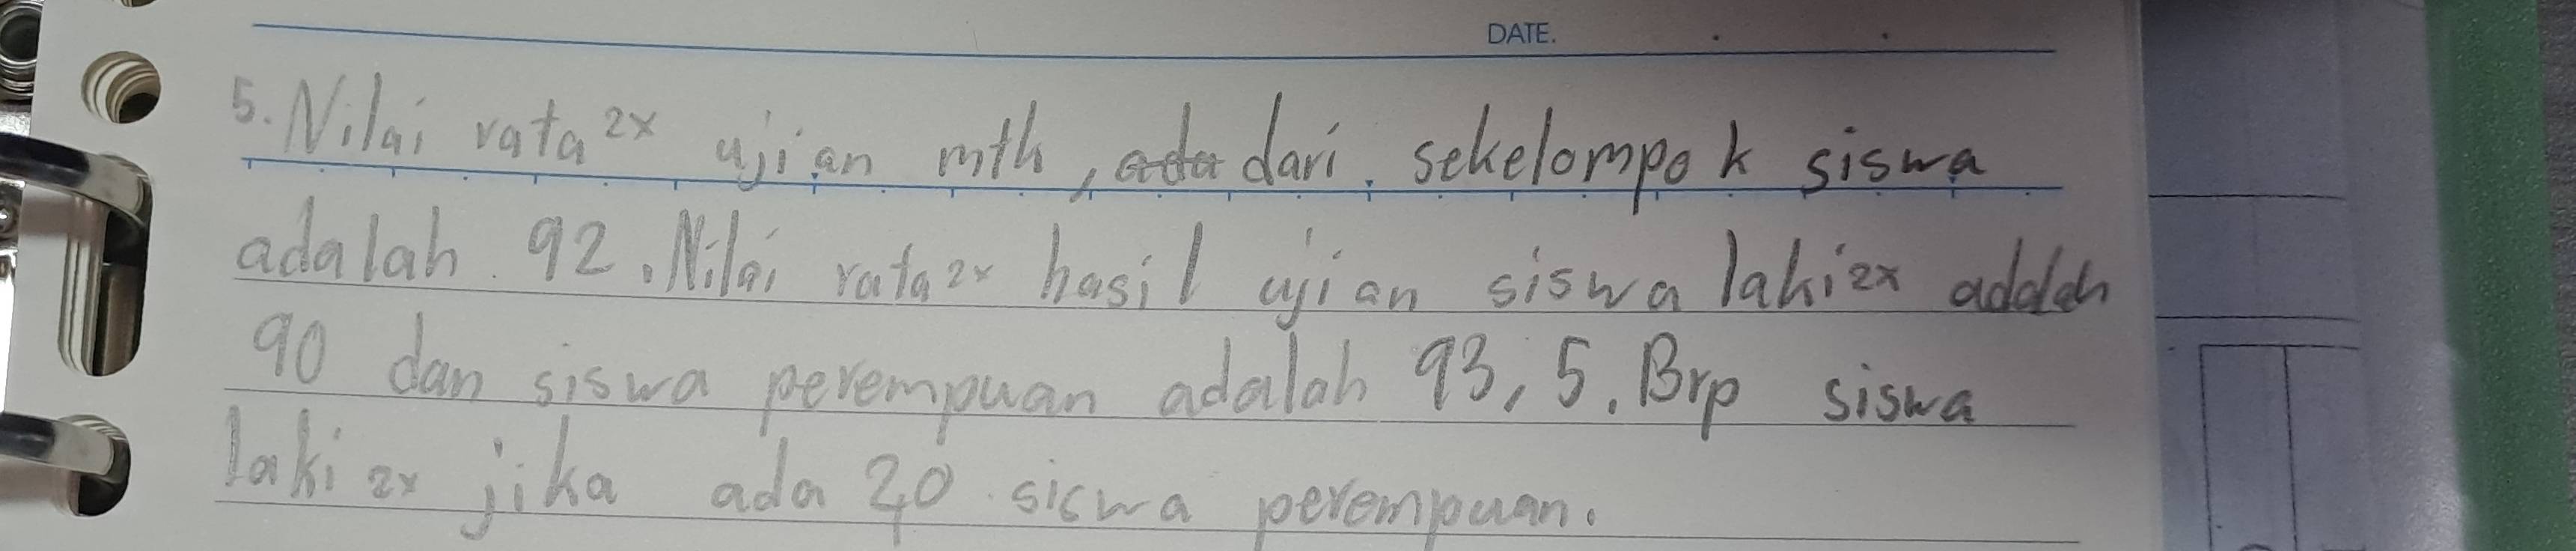 DATE.
5. Nilai rata2x ujian mth, ada dari sekelompok siswa
adalah 92. Nilai rata2x hasil ujian siswa laki2x adalah
90 dan siswa perempuan adalah 93,5. Brp siswa
laki2x jika ada 20 siswa perempuan.